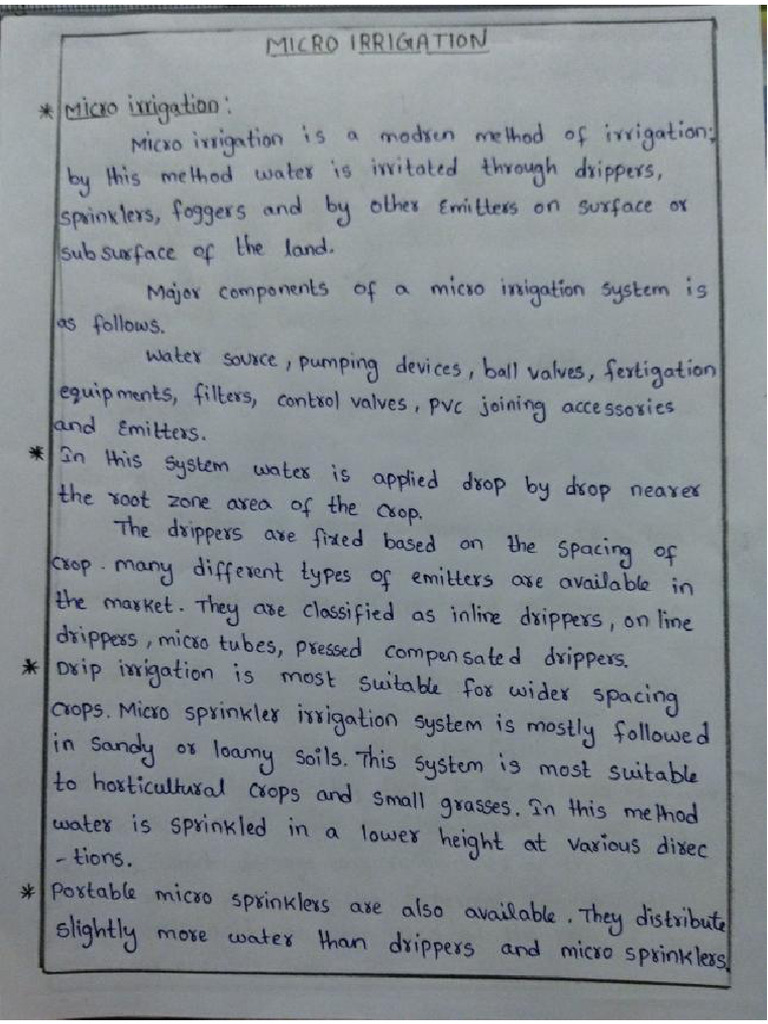 MICRO IRRIGATION
* Micro irrigation:
Micro irrigation is a modren method of irrigation;
by this method water is irritated through drippers,
sprinklers, foggers and by other Emitters on surface or
subsurface of the land.
Major components of a micro irrigation system is
as follows.
Water source, pumping devices, ball valves, fertigation
equipments, filters, control valves, PVC joining accessories
and Emitters.
* In this system water is applied drop by drop nearer
the root zone area of the crop.
The drippers are fixed based on the spacing of
crop. many different types of emitters are available in
the market. They are classified as inline drippers, on line
drippers, micro tubes, pressed compensated drippers.
* Drip irrigation is most suitable for wider spacing
crops. Micro sprinkler irrigation system is mostly followed
in sandy or loamy soils. This system is most suitable
to horticultural crops and small grasses. In this method
water is sprinkled in a lower height at various direc
-tions.
* Portable micro sprinklers are also available. They distribute
slightly more water than drippers and micro sprinklers.